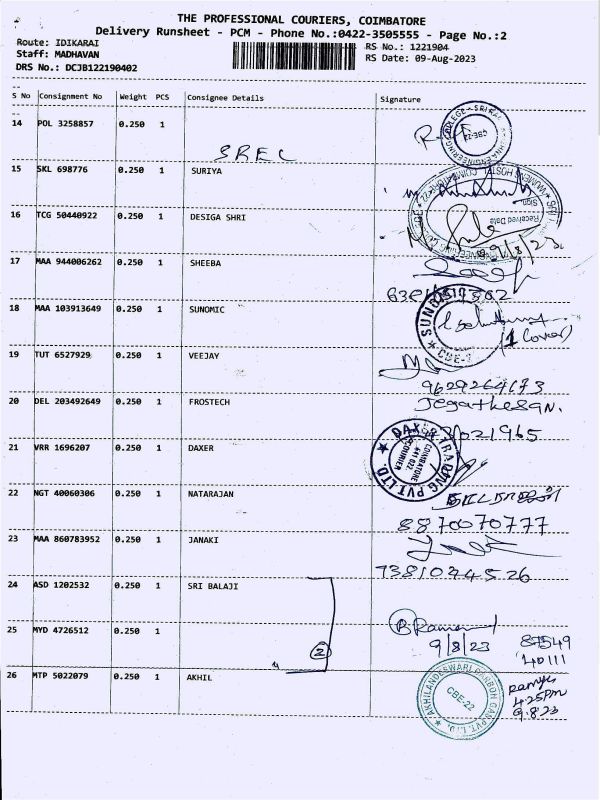 THE PROFESSIONAL COURIERS, COIMBATORE
Delivery Runsheet - PCM - Phone No.:0422-3505555 - Page No.:2
Route: IDIKARAI
Staff: MADHAVAN
DRS No.: DCJB122190402
RS No.: 1221904
RS Date: 09-Aug-2023
S No Consignment No Weight PCS Consignee Details Signature
14 POL 3258857 0.250 1
SREC
15 SKL 698776 0.250 1 SURIYA
16 TCG 50440922 0.250 1 DESIGA SHRI
Received Date
Sign
9/8/23
17 MAA 944006262 0.250 1 SHEEBA
18 MAA 103913649 0.250 1 SUNOMIC
(1 Cover)
CBE-
19 TUT 6527929 0.250 1 VEEJAY
9629264173
20 DEL 203492649 0.250 1 FROSTECH
Jegathesan.
21 VRR 1696207 0.250 1 DAXER
DAXER TRADING PVT. LTD.
COIMBATORE
641 022.
COURIER
22 NGT 40060306 0.250 1 NATARAJAN
8870070777
23 MAA 860783952 0.250 1 JANAKI
24 ASD 1202532 0.250 1 SRI BALAJI
25 MYD 4726512 0.250 1
2
9/8/23
26 MTP 5022079 0.250 1 AKHIL
CBE-22
4.25pm
9.8.23